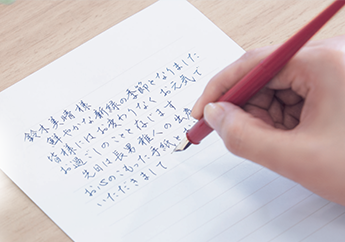 鈴木美晴様
鮮やかな新緑の季節となりました
皆様にはお変わりなくお元気で
お過ごしのことと存じます
先日は長男雅人の
お心のこもった手紙と
いただきまして